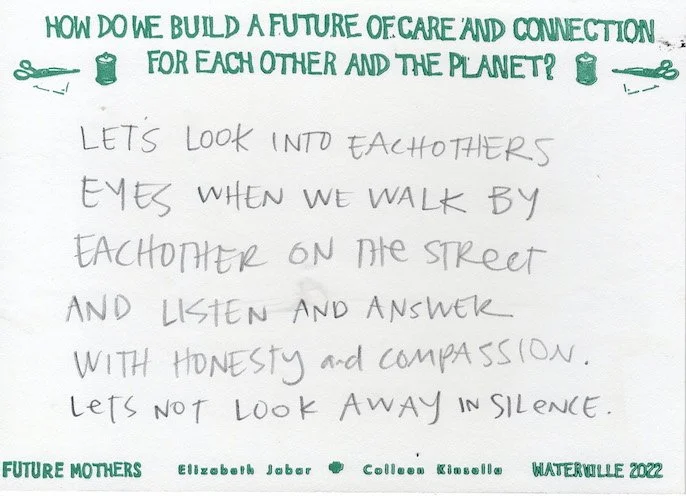 HOW DO WE BUILD A FUTURE OF CARE AND CONNECTION
FOR EACH OTHER AND THE PLANET?
LET'S LOOK INTO EACHOTHERS
EYES WHEN WE WALK BY
EACHOTHER ON THe STReet
AND LISTEN AND ANSWER
WITH HONESTy and COMPASSION.
LeTS NOT LOOK AWAY IN SILeNCE.
FUTURE MOTHERS Elizabeth Jabar Colleen Kinsella WATERVILLE 2022